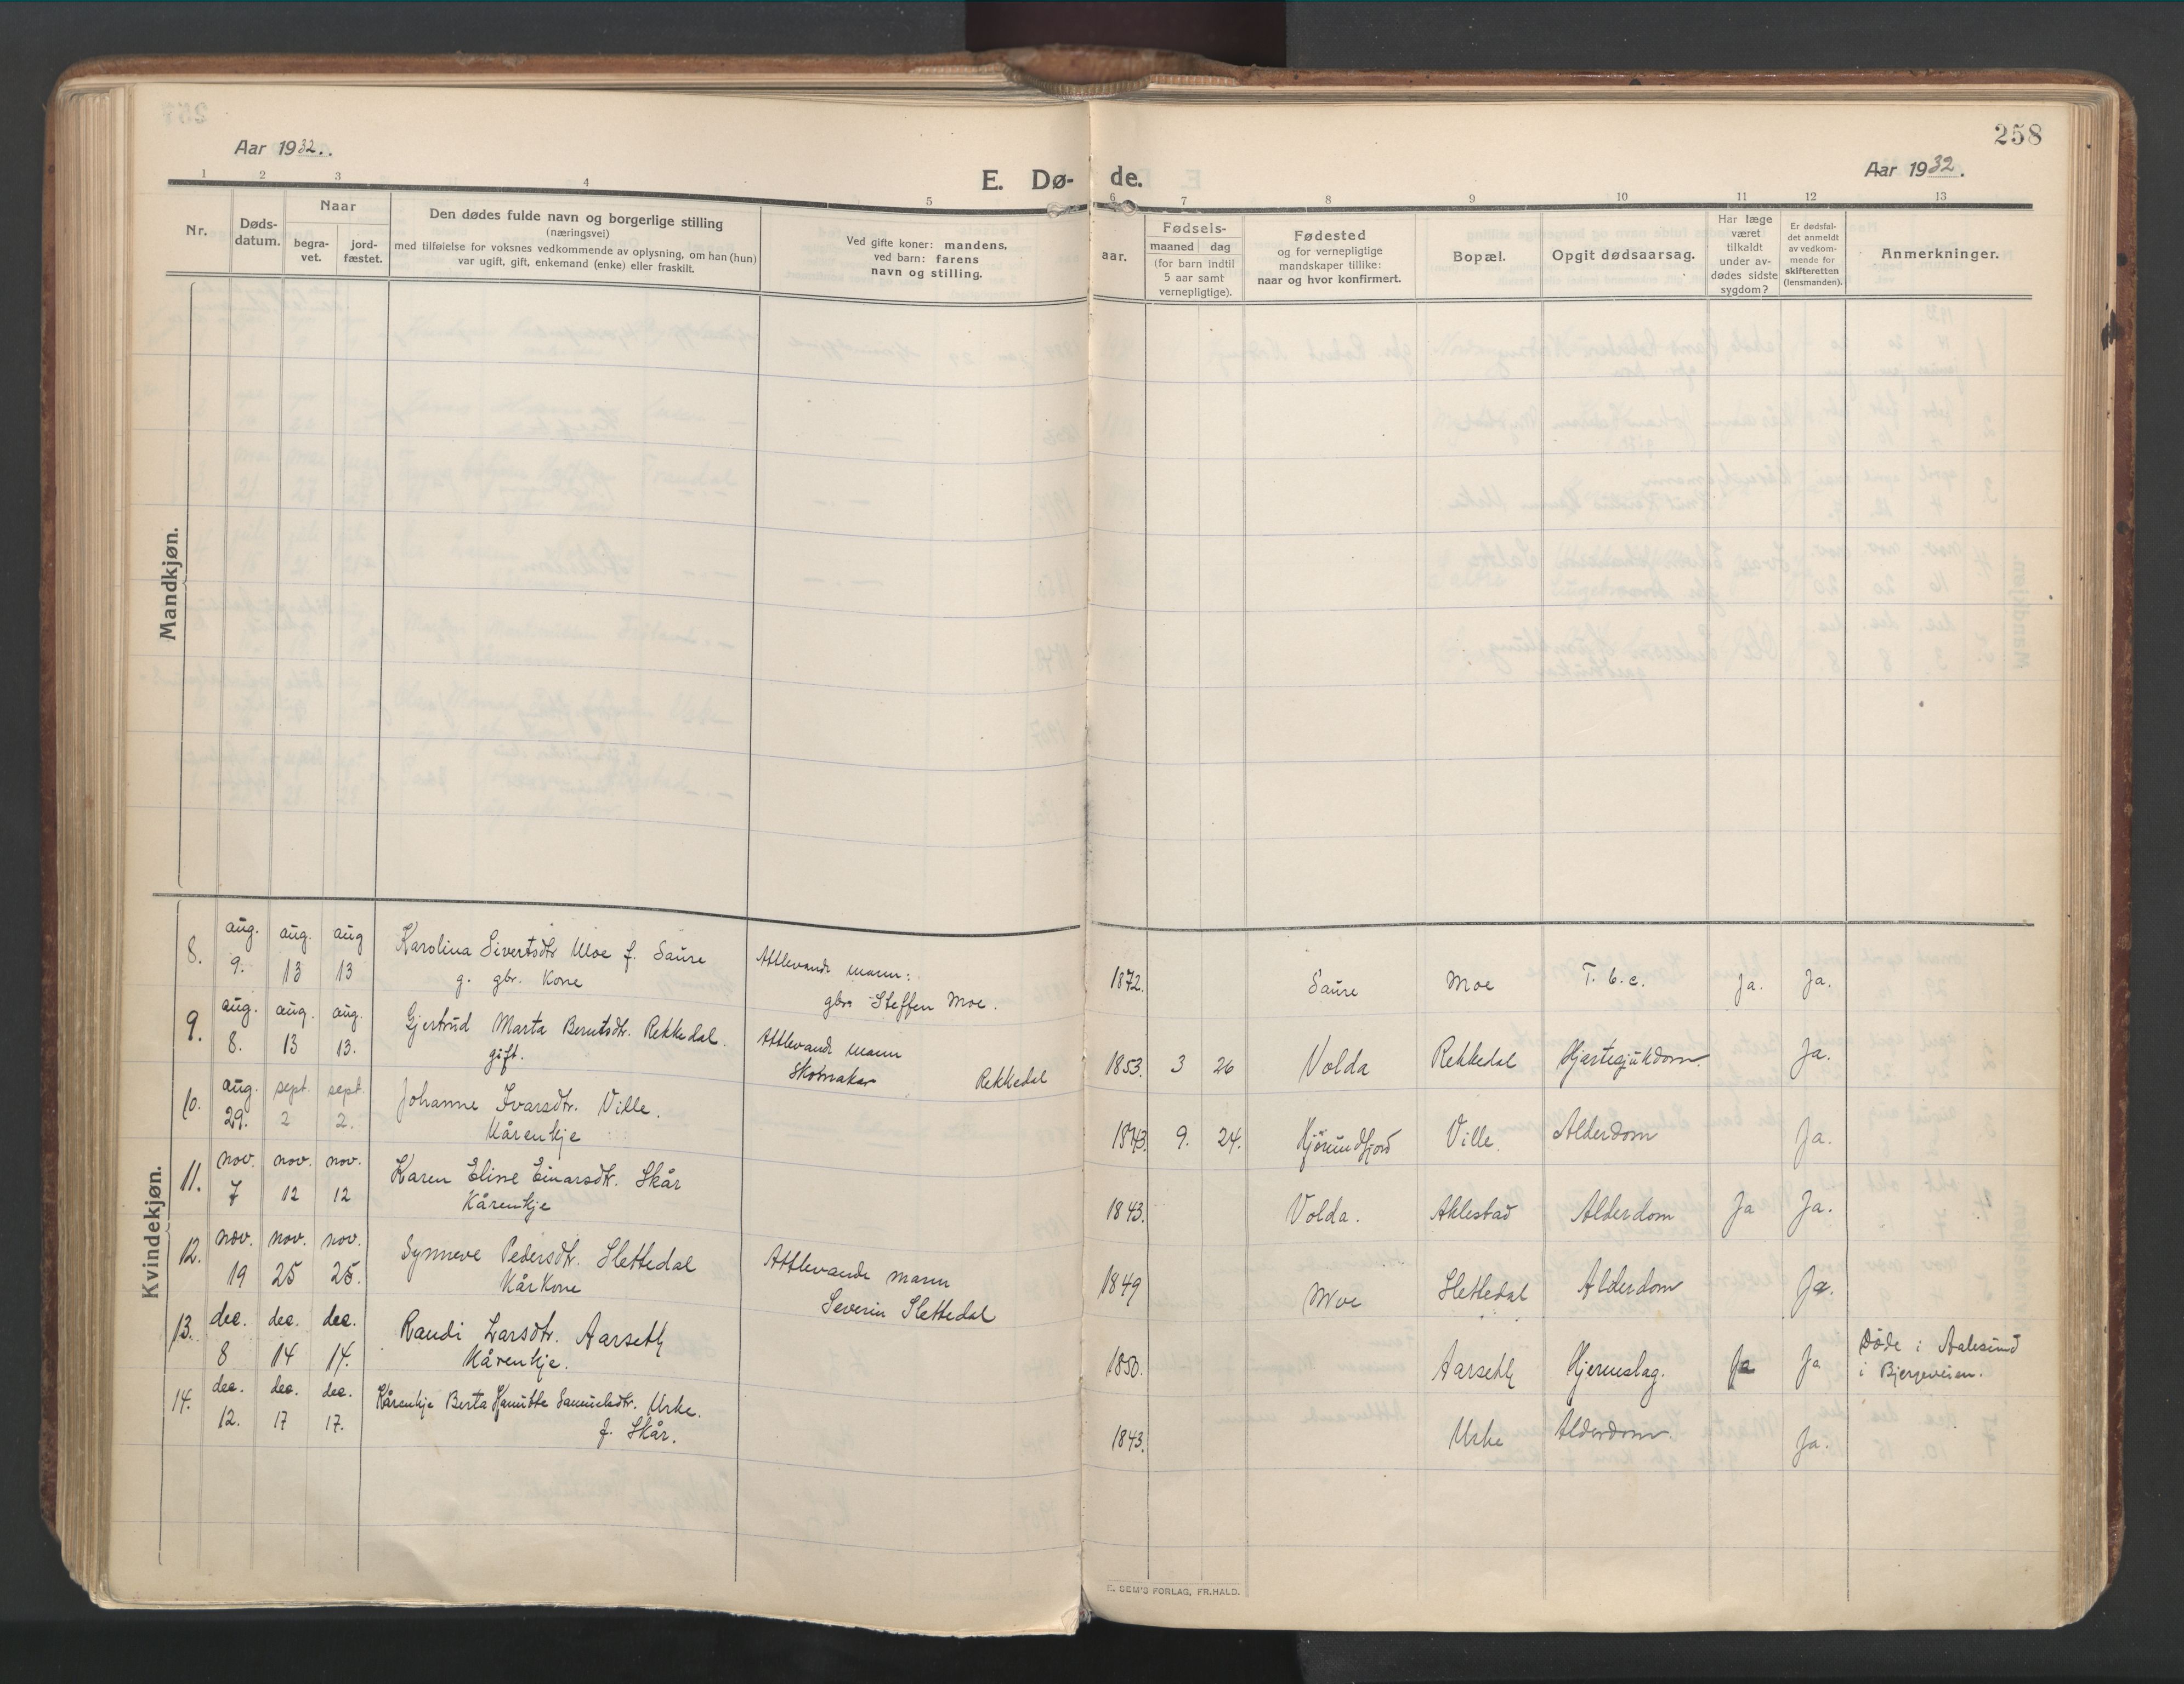 258
Aar 1932.
Aar 1932.
E. Dø- de.
1 2 3 4 5 6 7 8 9 10 11 12 13
Nr.
Døds-
datum.
Naar
begra-
vet.
jord-
fæstet.
Den dødes fulde navn og borgerlige stilling
(næringsvei)
med tilføielse for voksnes vedkommende av oplysning, om han (hun)
var ugift, gift, enkemand (enke) eller fraskilt.
Ved gifte koner: mandens,
ved barn: farens
navn og stilling.
Fødsels-
aar.
maaned dag
(for barn indtil
5 aar samt
vernepligtige).
Fødested
og for vernepligtige
mandskaper tillike:
naar og hvor konfirmert.
Bopæl.
Opgit dødsaarsag.
Har læge
været
tilkaldt
under av-
dødes sidste
sygdom?
Er dødsfal-
det anmeldt
av vedkom-
mende for
skifteretten
(lensmanden).
Anmerkninger.
Mandkjøn.
Kvindekjøn.
8. aug. 9. aug. 13 aug 13 Karolina Sivertsdtr Moe f. Saure
g. gbr. Kone
Attlevande mann:
gbr. Steffen Moe.
1872. Saure Moe T. b. c. Ja. Ja.
9. aug. 8. aug. 13 aug. 13. Gjertrud Marta Berntsdtr. Rekkedal.
gift.
Attlevande mann
Skomakar Rekkedal
1853. 3 26 Volda Rekkedal Hjartesjukdom. Ja.
10. aug. 29. sept. 2 sept. 2. Johanne Ivarsdtr. Ville.
Kårenkje
1843 9. 24. Hjørundfjord Ville. Alderdom Ja.
11. nov. 7 nov. 12 nov. 12 Karen Eline Einarsdtr. Skår
Kårenkje
1843. Volda. Aklestad Alderdom Ja Ja.
12. nov. 19 nov. 25 nov. 25. Synneve Pedersdtr. Slettedal
Kårkone
Attlevande mann
Severin Slettedal
1849 Moe Slettedal Alderdom Ja.
13. dec. 8 dec. 14 dec. 14. Raudi Larsdtr. Aarseth
Kårenkje.
1850. Aarseth Hjerneslag. Ja Ja Døde i Aalesund
i Bjergeveien.
14. dec. 12. dec. 17 dec. 17. Kårenkje Berta Samuelsdtr. Urke.
f. Skår.
1843. Urke Alderdom. Ja.
E. SEM'S FORLAG, FR.HALD.